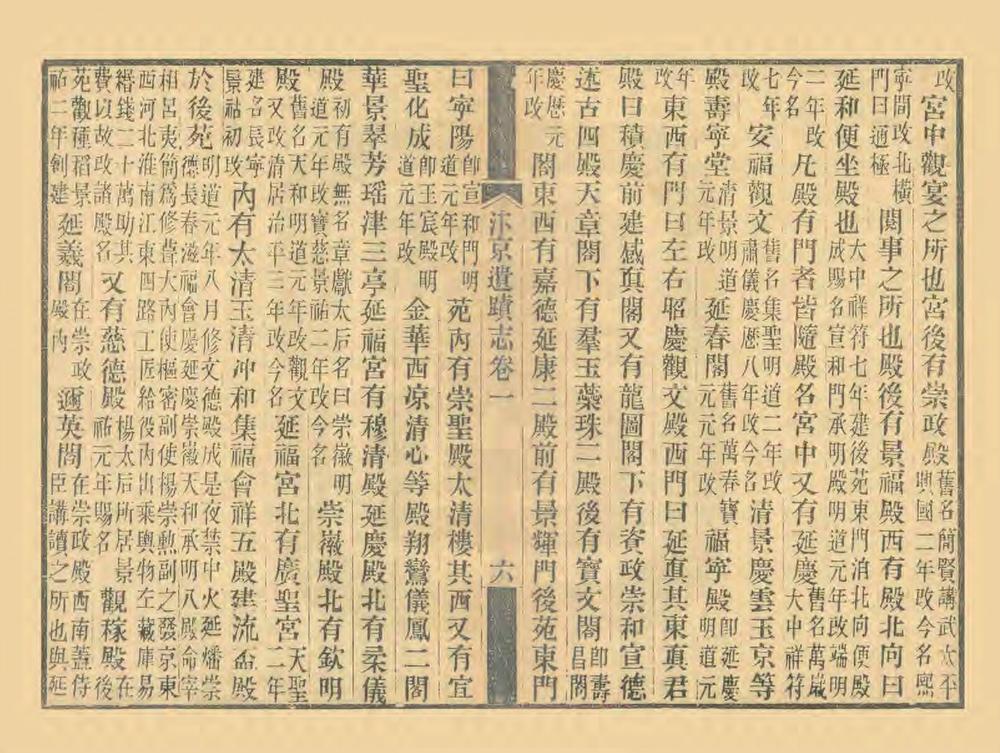 改宮中觀宴之所也宮後有崇政殿舊名簡賢講武太平興國二年改今名熙
寧間改北橫門曰通極閱事之所也殿後有景福殿西有殿北向曰
延和便坐殿也大中祥符七年建後苑東門洎北向便殿成賜名宣和門承明殿明道元年改端明
二年改今名凡殿有門者皆隨殿名宮中又有延慶舊名萬歲大中祥符
七年改安福觀文舊名集聖明道二年改肅儀慶歷八年改今名清景慶雲玉京等
殿壽寧堂清景明道元年改延春閣舊名萬春寶元元年改福寧殿卽延慶明道元
年改東西有門曰左右昭慶觀文殿西門曰延真其東真君
殿曰積慶前建感真閣又有龍圖閣下有資政崇和宣德
述古四殿天章閣下有羣玉蘂珠二殿後有寶文閣卽壽昌閣
慶歷元年改閣東西有嘉德延康二殿前有景輝門後苑東門
汴京遺蹟志卷一 六
曰寧陽卽宣和門明道元年改苑內有崇聖殿太清樓其西又有宜
聖化成卽玉宸殿明道元年改金華西凉清心等殿翔鸞儀鳳二閣
華景翠芳瑤津三亭延福宮有穆清殿延慶殿北有柔儀
殿初有殿無名章獻太后名曰崇徽明道元年改寶慈景祐二年改今名崇徽殿北有欽明
殿舊名天和明道元年改觀文又改清居治平三年改今名延福宮北有廣聖宮天聖二年
建名長寧景祐初改內有太清玉清沖和集福會祥五殿建流盃殿
於後苑明道元年八月修文德殿成是夜禁中火延燔崇德長春滋福會慶延慶崇徽天和承明八殿命宰
相呂夷簡爲修葺大內使樞密副使楊崇勳副之發京東西河北淮南江東四路工匠給役內出乘輿物左藏庫易
緡錢二十萬助其費以故改諸殿名又有慈德殿楊太后所居景祐元年賜名觀稼殿在後
苑觀種稻景祐二年創建延義閣在崇政殿內邇英閣在崇政殿西南蓋侍臣講讀之所也與延